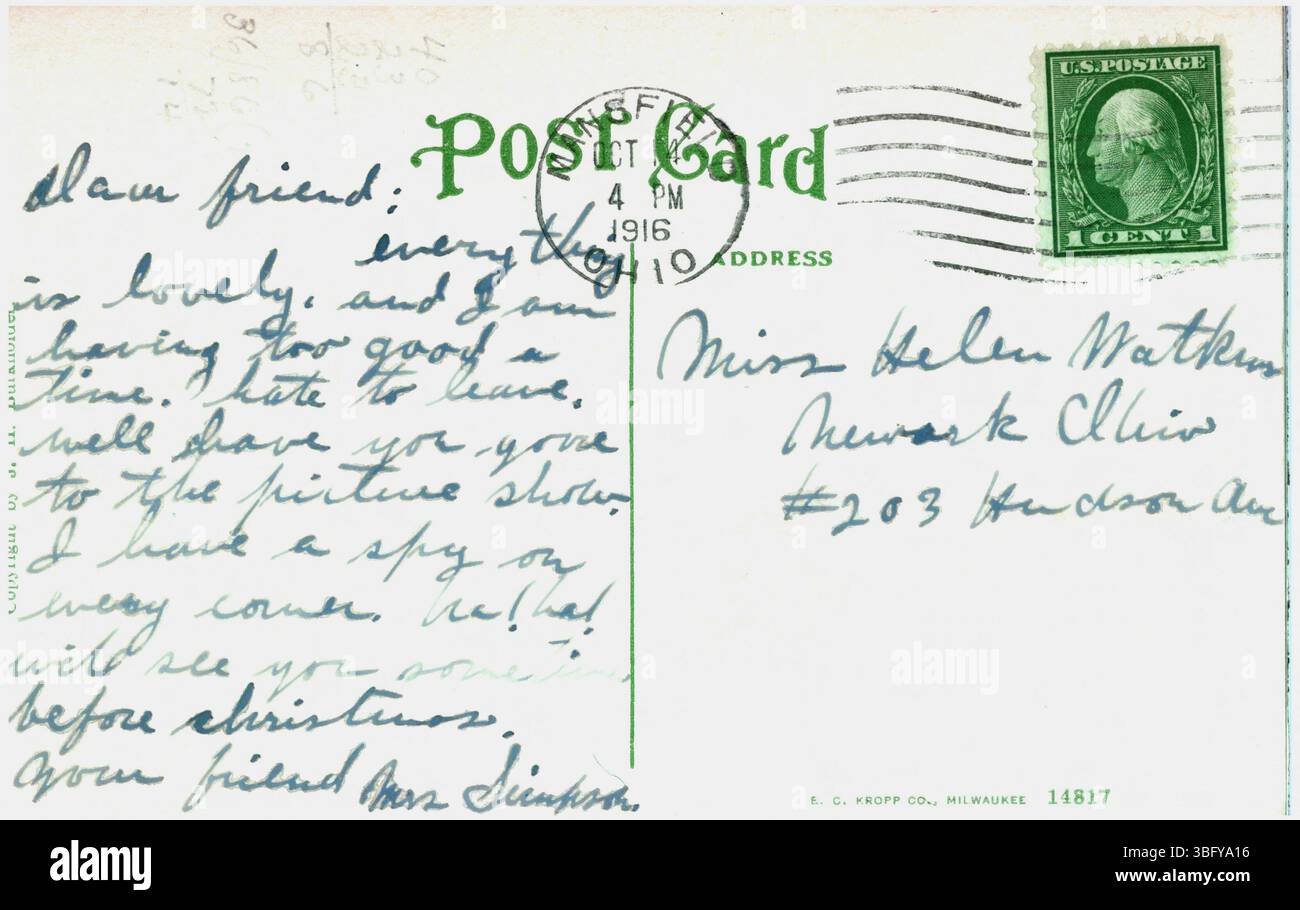 POST CARD
MANSFIELD
OCT 4
4 PM
1916
OHIO
U.S. POSTAGE
1 CENT 1
Dear friend:
everything
is lovely. and I am
having too good a
time. hate to leave.
well have you gone
to the picture show.
I have a spy on
every corner. ha! ha!
will see you sometime
before christmas.
your friend Mrs Simpson.
ADDRESS
Miss Helen Watkins
Newark Ohio
#203 Hudson Ave
Copyright by J. H. Burkholder
E. C. KROPP CO., MILWAUKEE 14817
alamy
Image ID: 3BFYA16
www.alamy.com